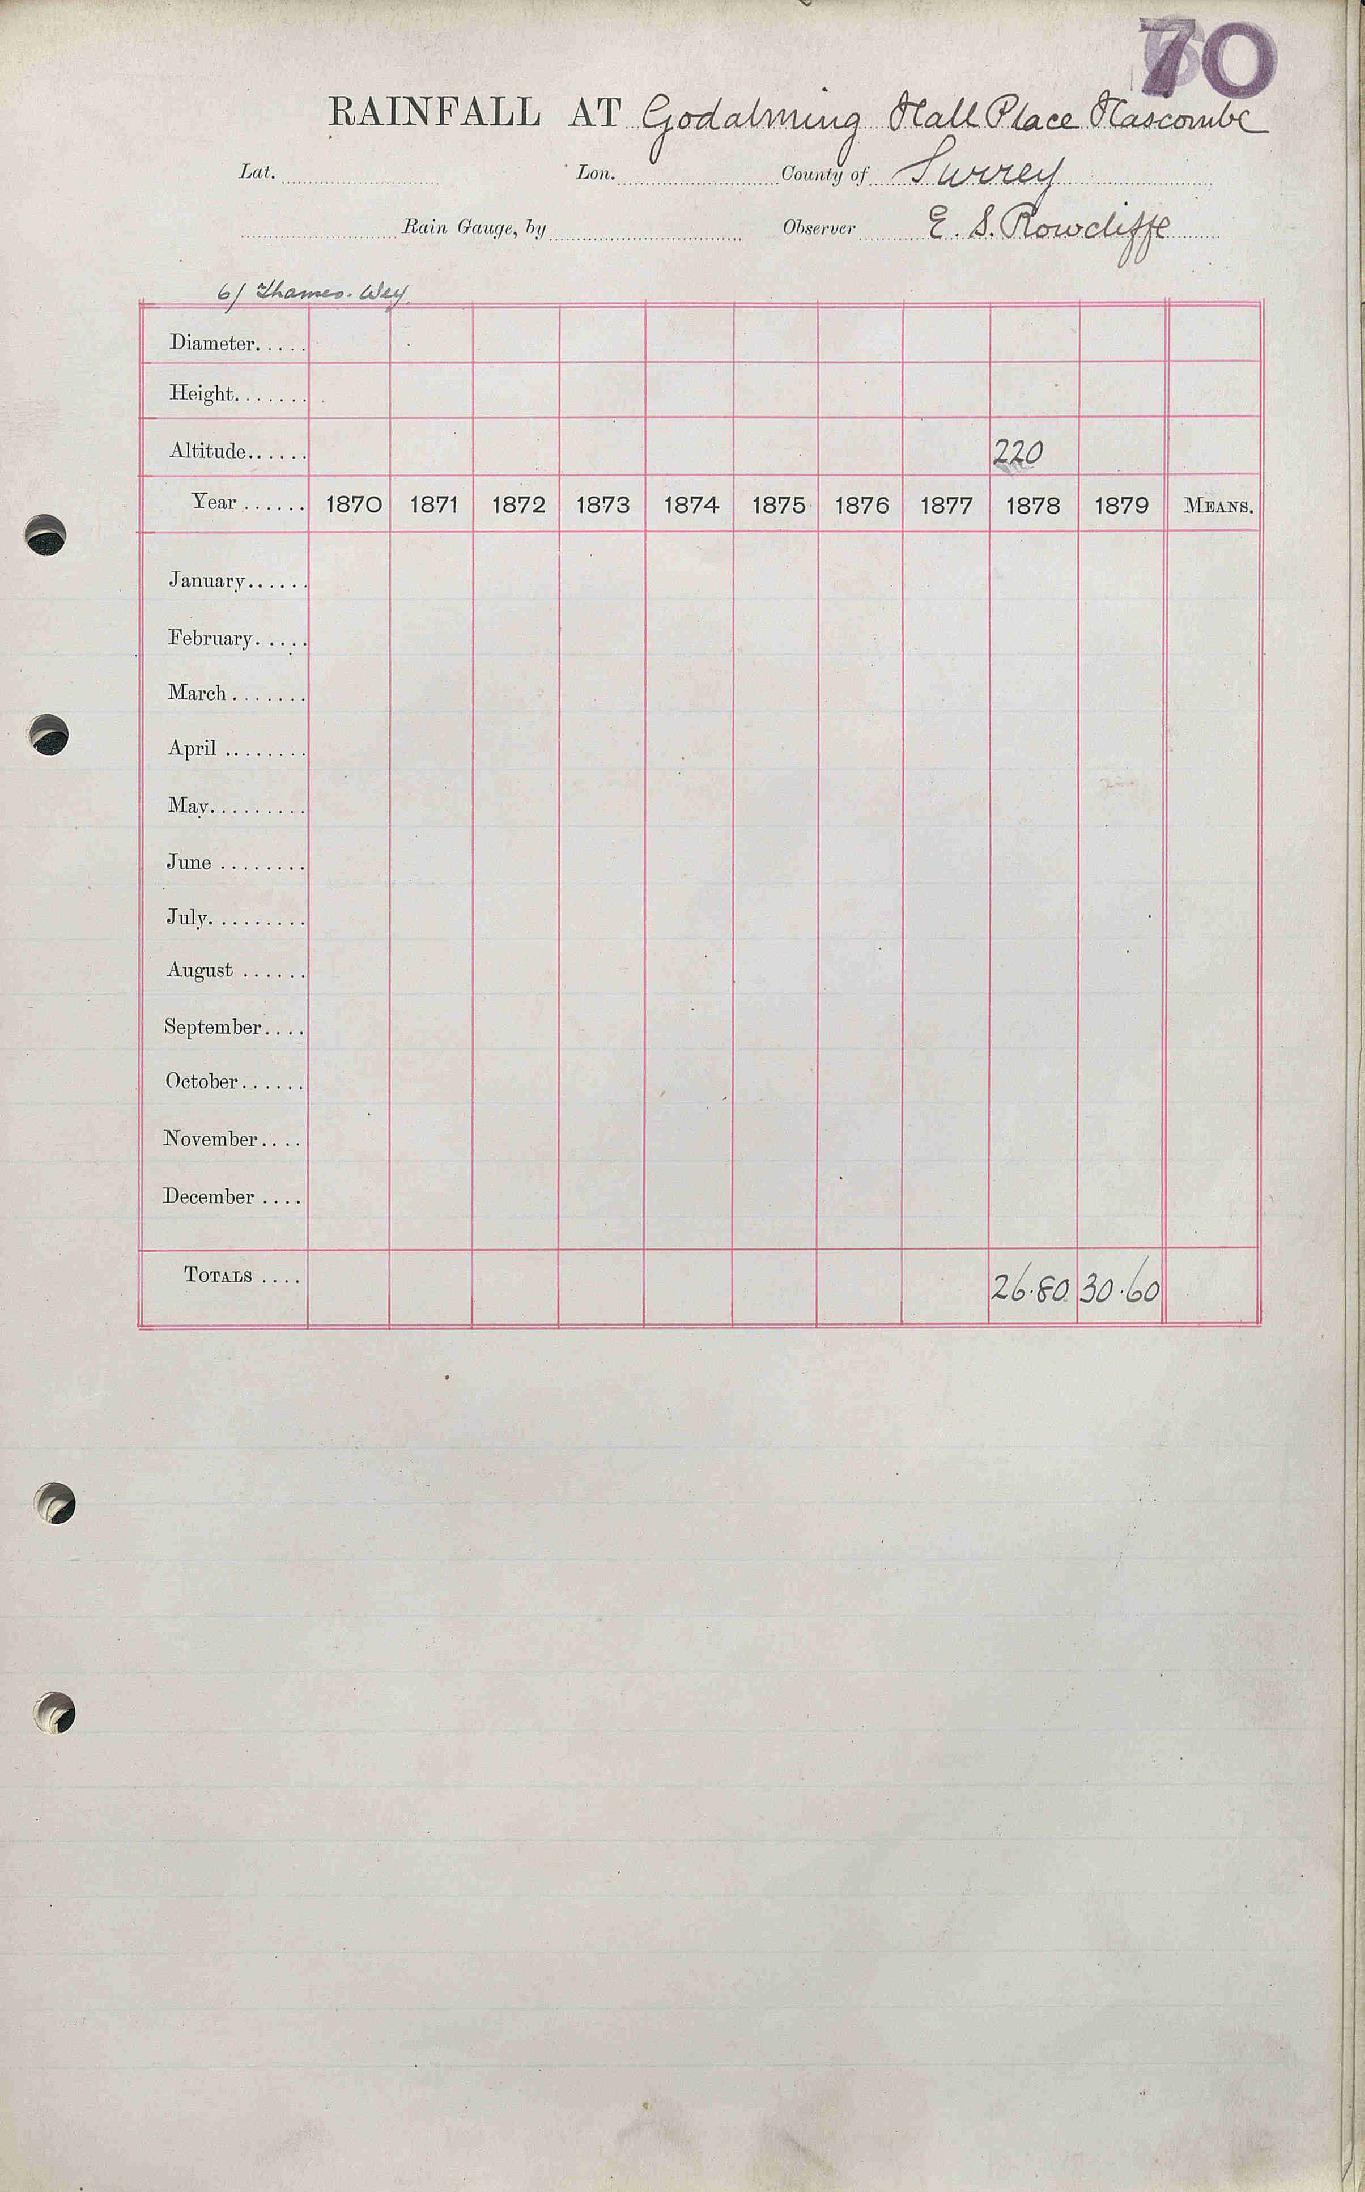 70
RAINFALL AT Godalming Hall Place Hascombe
Lat. Lon. County of Surrey
Rain Gauge, by Observer E. S. Rowcliffe
6/ Thames. Wey
Diameter.....
Height.......
Altitude...... 220
Year ...... 1870 1871 1872 1873 1874 1875 1876 1877 1878 1879 MEANS.
January......
February.....
March .......
April ........
May.........
June ........
July.........
August ......
September....
October......
November....
December ....
TOTALS .... 26.80 30.60